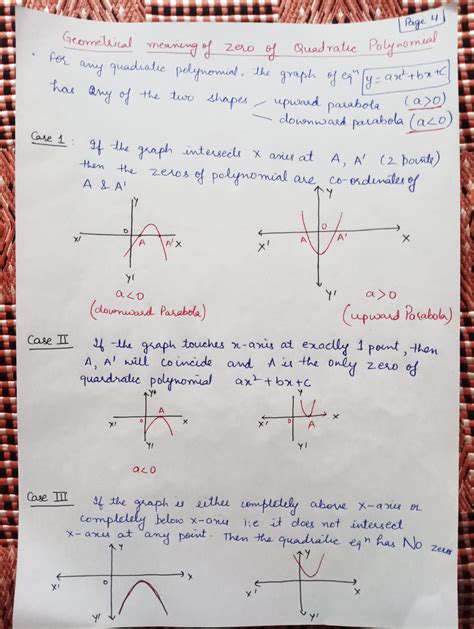 Page 4
Geometrical meaning of zero of Quadratic Polynomial
• For any quadratic polynomial, the graph of eqⁿ y = ax² + bx + c
has any of the two shapes — upward parabola (a>0)
— downward parabola (a<0)
Case 1 : If the graph intersects X axis at A, A' (2 points)
then the zeros of polynomial are co-ordinates of
A & A'
Y Y
X' O A A' X X' A O A' X
Y' Y'
a<0 a>0
(downward Parabola) (upward Parabola)
Case II If the graph touches x-axis at exactly 1 point, then
A, A' will coincide and A is the only zero of
quadratic polynomial ax² + bx + c
Y Y
X' O A X X' O A X
Y' Y'
a<0
Case III If the graph is either completely above X-axis or
completely below X-axis i.e it does not intersect
X-axis at any point. Then the quadratic eqⁿ has No zeros
Y Y
X' O X X' X
Y' Y'